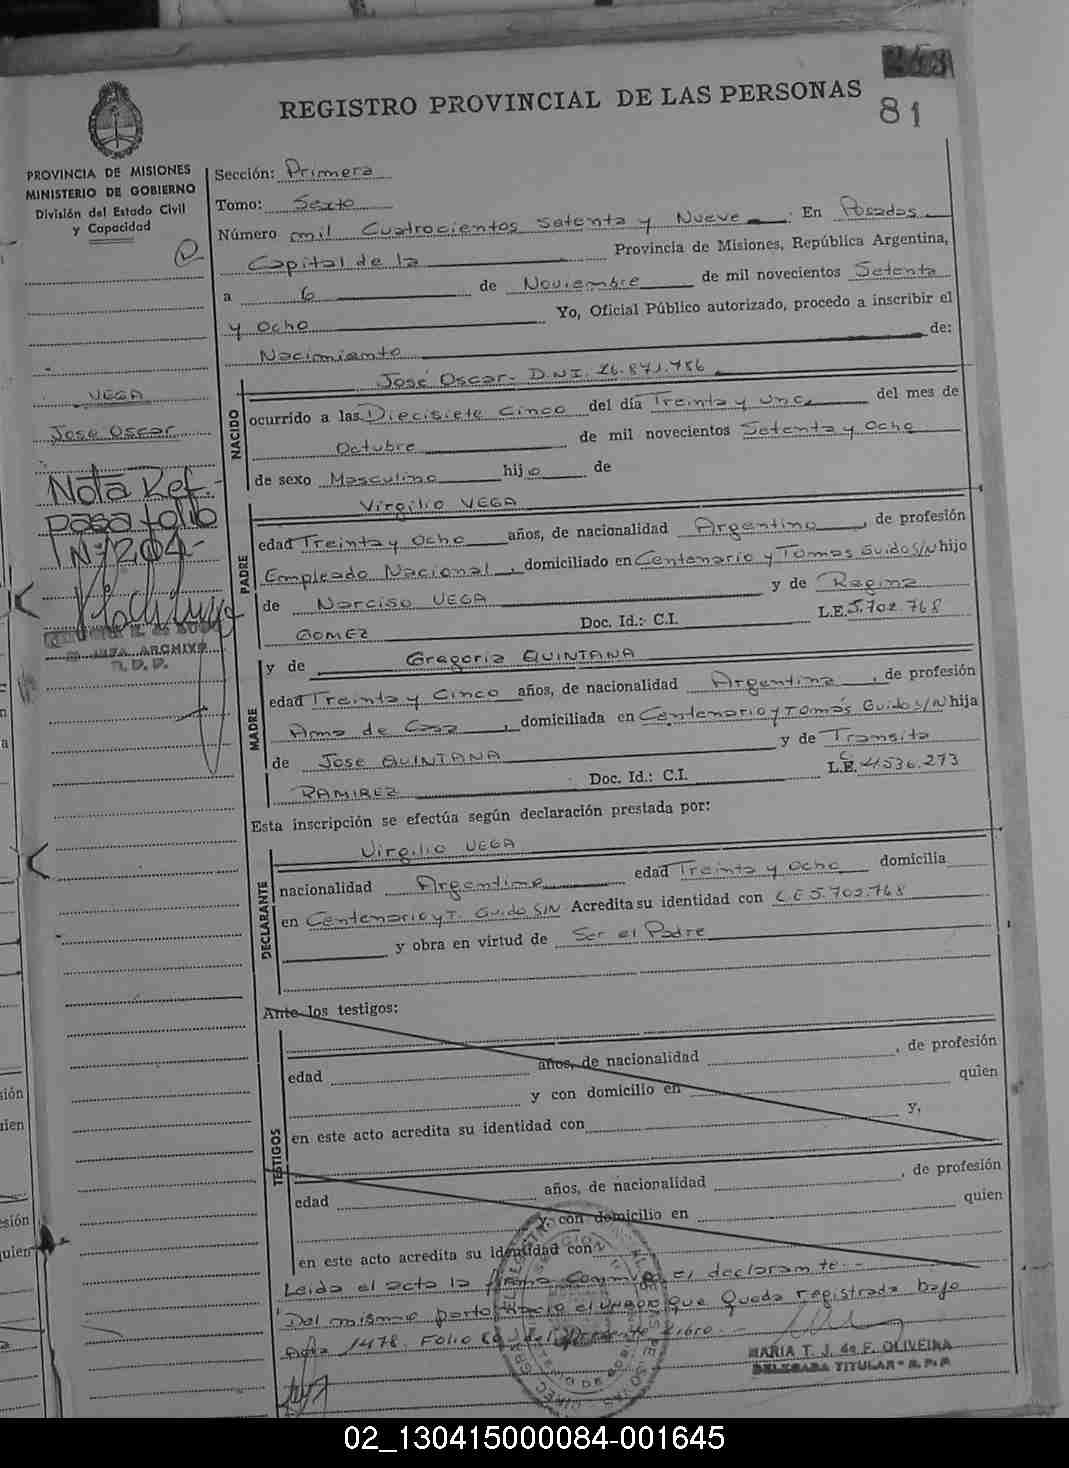 REGISTRO PROVINCIAL DE LAS PERSONAS
81
PROVINCIA DE MISIONES
MINISTERIO DE GOBIERNO
División del Estado Civil
y Capacidad
Sección: Primera
Tomo: Sexto
Número mil Cuatrocientos Setenta y Nueve . En Posadas
Capital de la Provincia de Misiones, República Argentina,
a 6 de Noviembre de mil novecientos Setenta
y Ocho Yo, Oficial Público autorizado, procedo a inscribir el
Nacimiento de:
VEGA
José Oscar
Nota Ref.-
pasa folio
Nº 204-
ARCHIVO
R. D. P.
NACIDO
José Oscar- D.N.I. 26.871.786
ocurrido a las Diecisiete Cinco del día Treinta y uno del mes de
Octubre de mil novecientos Setenta y Ocho
de sexo Masculino hijo de
PADRE
Virgilio VEGA
edad Treinta y Ocho años, de nacionalidad Argentino , de profesión
Empleado Nacional , domiciliado en Centenario y Tomas Guido S/N hijo
de Narciso VEGA y de Regina
GOMEZ Doc. Id.: C.I. L.E. 5.702.768
MADRE
y de Gregoria QUINTANA
edad Treinta y Cinco años, de nacionalidad Argentina , de profesión
Ama de Casa , domiciliada en Centenario y Tomás Guido S/N hija
de José QUINTANA y de Transita
RAMIREZ Doc. Id.: C.I. L.C. 4.536.273
Esta inscripción se efectúa según declaración prestada por:
DECLARANTE
Virgilio VEGA
nacionalidad Argentino edad Treinta y Ocho domicilia
en Centenario y T. Guido S/N Acredita su identidad con L.E 5.702.768
y obra en virtud de Ser el Padre
Ante los testigos:
TESTIGOS
edad años, de nacionalidad , de profesión
y con domicilio en quien
en este acto acredita su identidad con y,
edad años, de nacionalidad , de profesión
y con domicilio en quien
en este acto acredita su identidad con
Leida el acta la firma Conmigo el declarante.-
Del mismo parto nació el varon que Queda registrado bajo
Acta 1478. Folio 80 del Presente Libro.-
MARIA T. J. de F. OLIVEIRA
DELEGADA TITULAR - R. P. P
02_130415000084-001645